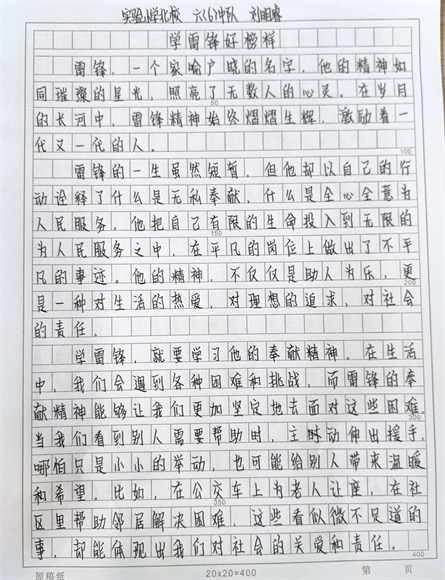 实验小学北校 六(6)中队 刘明睿
学雷锋好榜样
雷锋，一个家喻户晓的名字，他的精神如
同璀璨的星光，照亮了无数人的心灵。在岁月
的长河中，雷锋精神始终熠熠生辉，激励着一
代又一代的人。
雷锋的一生虽然短暂，但他却以自己的行
动诠释了什么是无私奉献，什么是全心全意为
人民服务，他把自己有限的生命投入到无限的
为人民服务之中，在平凡的岗位上做出了不平
凡的事迹。他的精神，不仅仅是助人为乐，更
是一种对生活的热爱，对理想的追求，对社会
的责任。
学雷锋，就要学习他的奉献精神。在生活
中，我们会遇到各种困难和挑战，而雷锋的奉
献精神能够让我们更加坚定地去面对这些困难。
当我们看到别人需要帮助时，主动伸出援手，
哪怕只是小小的举动，也可能给别人带来温暖
和希望。比如，在公交车上为老人让座，在社
区里帮助邻居解决困难，这些看似微不足道的
事，却能体现出我们对社会的关爱和责任。
50
100
150
200
300
350
400
原稿纸 20×20=400 第 页